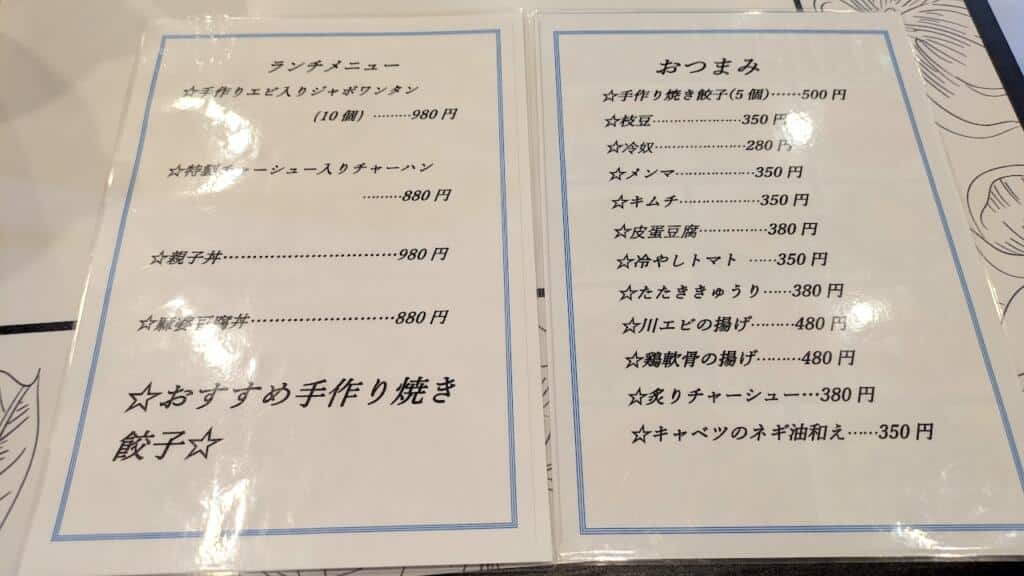 ランチメニュー
☆手作りエビ入りジャボワンタン
(10個) ………980円
☆特製チャーシュー入りチャーハン
………880円
☆親子丼……………………………980円
☆麻婆豆腐丼………………………880円
☆おすすめ手作り焼き
餃子☆
おつまみ
☆手作り焼き餃子(5個)……500円
☆枝豆…………………350円
☆冷奴…………………280円
☆メンマ………………350円
☆キムチ………………350円
☆皮蛋豆腐……………380円
☆冷やしトマト ……350円
☆たたききゅうり……380円
☆川エビの揚げ………480円
☆鶏軟骨の揚げ………480円
☆炙りチャーシュー…380円
☆キャベツのネギ油和え……350円